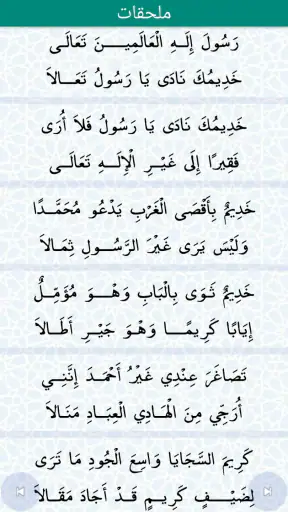 ملحقات
رَسُولَ إِلَـهِ الْعَالَمِيـــــنَ تَعَالَـى
خَدِيمُكَ نَادَى يَا رَسُولُ تَعَــالاَ
خَدِيمُكَ نَادَى يَا رَسُولُ فَلاَ أُرَى
فَقِيرًا إِلَى غَيْـرِ الْإِلَــهِ تَعَالَــى
خَدِيمٌ بِأَقْصَى الْغَرْبِ يَدْعُو مُحَمَّــدًا
وَلَيْسَ يَرَى غَيْرَ الرَّسُــولِ ثِمَـالاَ
خَدِيمٌ ثَوَى بِالْبَابِ وَهْــوَ مُؤَمِّـلٌ
إِيَابًا كَرِيمًــا وَهْوَ جَيْــرِ أَطَــالاَ
تَصَاغَرَ عِنْدِي غَيْرُ أَحْمَـدَ إِنَّنِـي
أُرَجِّي مِنَ الْهَـادِي الْعِبَـادِ مَنَـالاَ
كَرِيمَ السَّجَايَا وَاسِعَ الْجُودِ مَا تَرَى
لِضَيْــفٍ كَرِيــمٍ قَــدْ أَجَادَ مَقَــالاَ